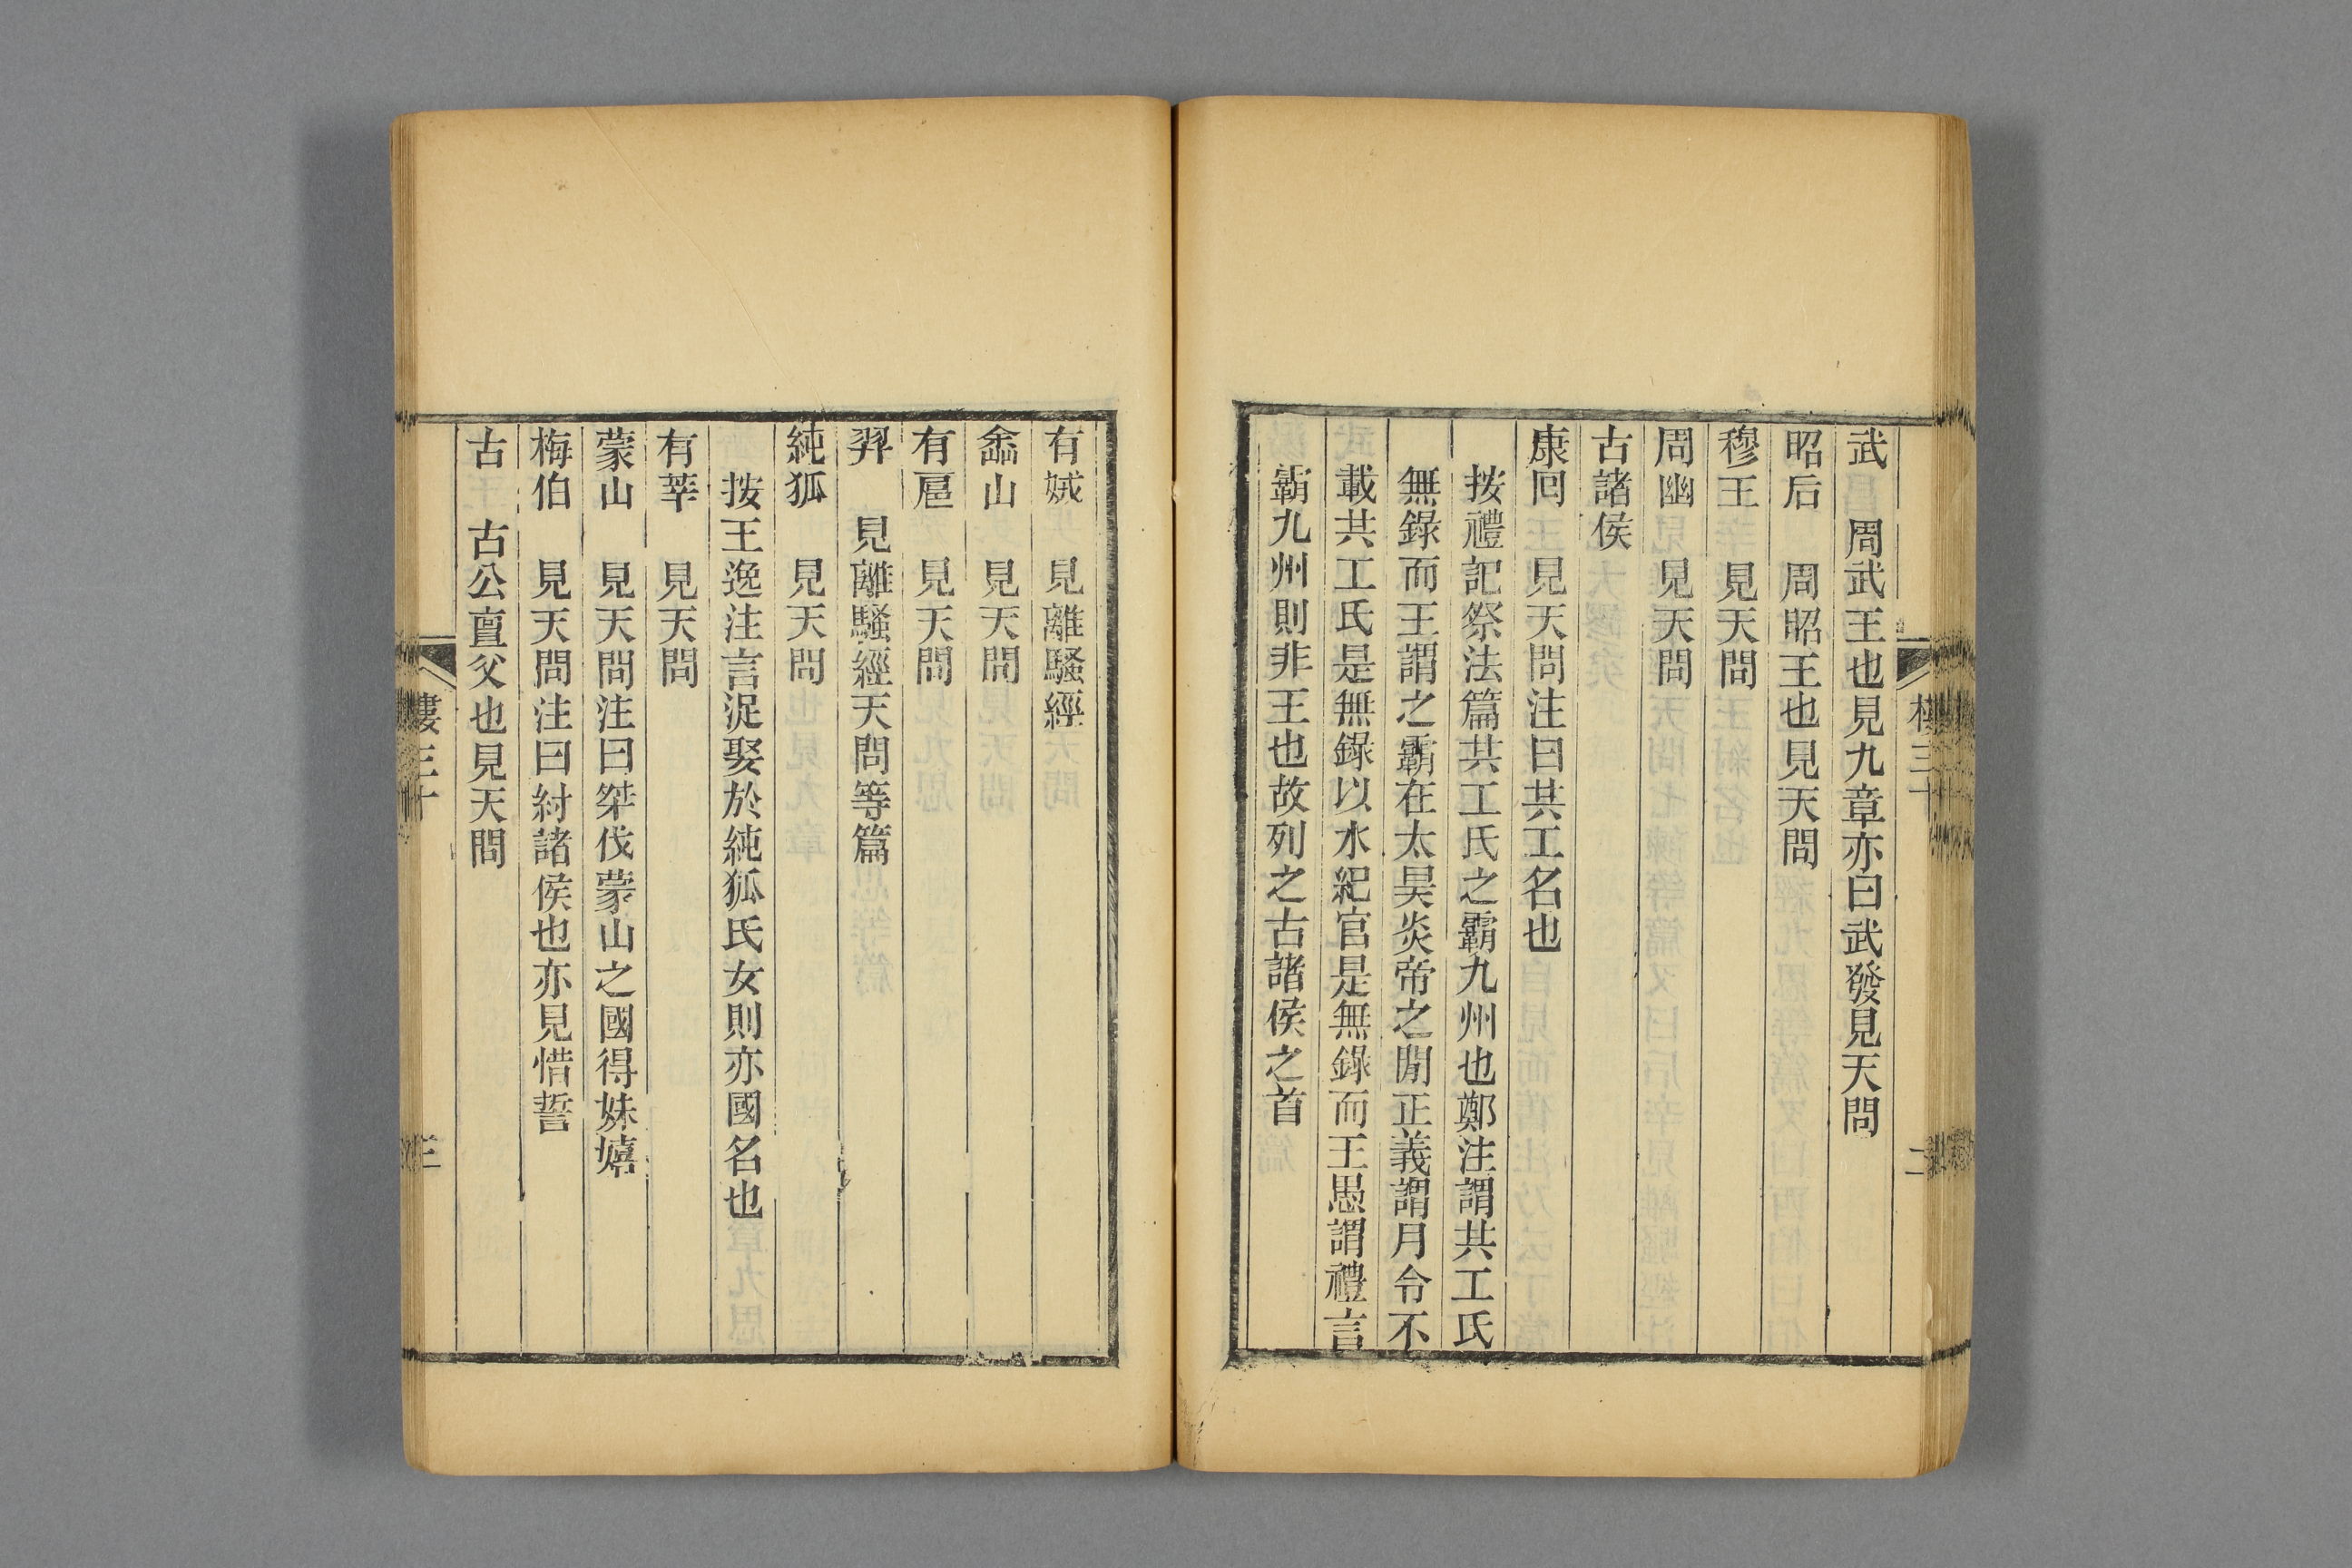 武　周武王也見九章亦曰武發見天問
昭后　周昭王也見天問
穆王　見天問
周幽　見天問
古諸侯
康回　見天問注曰共工名也
按禮記祭法篇共工氏之霸九州也鄭注謂共工氏
無錄而王謂之霸在太昊炎帝之閒正義謂月令不
載共工氏是無錄以水紀官是無錄而王愚謂禮言
霸九州則非王也故列之古諸侯之首
有娀　見離騷經
嵞山　見天問
有扈　見天問
羿　見離騷經天問等篇
純狐　見天問
按王逸注言浞娶於純狐氏女則亦國名也
有莘　見天問
蒙山　見天問注曰桀伐蒙山之國得妹嬉
梅伯　見天問注曰紂諸侯也亦見惜誓
古　古公亶父也見天問